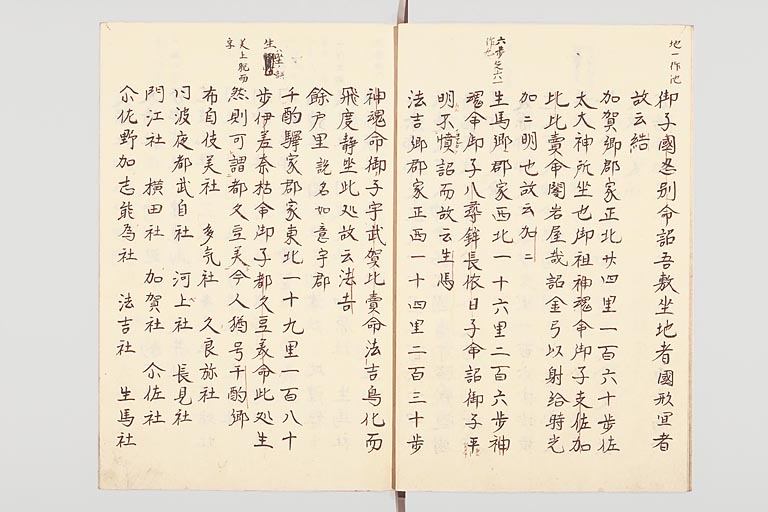 地一作池
御子國忍別命詔吾敷坐地者國形宜者
故云結
加賀郷郡家正北廿四里一百六十歩佐
太大神所坐也御祖神魂命御子支佐加
比比賣命闇岩屋哉詔金弓以射給時光
加二明也故云加二
六歩之六一
作九
生馬郷郡家西北一十六里二百六歩神
魂命御子八尋鉾長依日子命詔御子平
明不憤詔而故云生馬
法吉郷郡家正西一十四里二百三十歩
神魂命御子宇武賀比賣命法吉鳥化而
飛度静坐此処故云法吉
餘戸里説名如意宇郡
千酌驛家郡家東北一十九里一百八十
歩伊差奈枳命御子都久豆美命此処生
生
然則可謂都久豆美今人猶号千酌郷
美上脱而
字
布自伎美社 多気社 久良弥社
同波夜都武自社 河上社 長見社
門江社 横田社 加賀社 尓佐社
尓佐野加志能為社 法吉社 生馬社